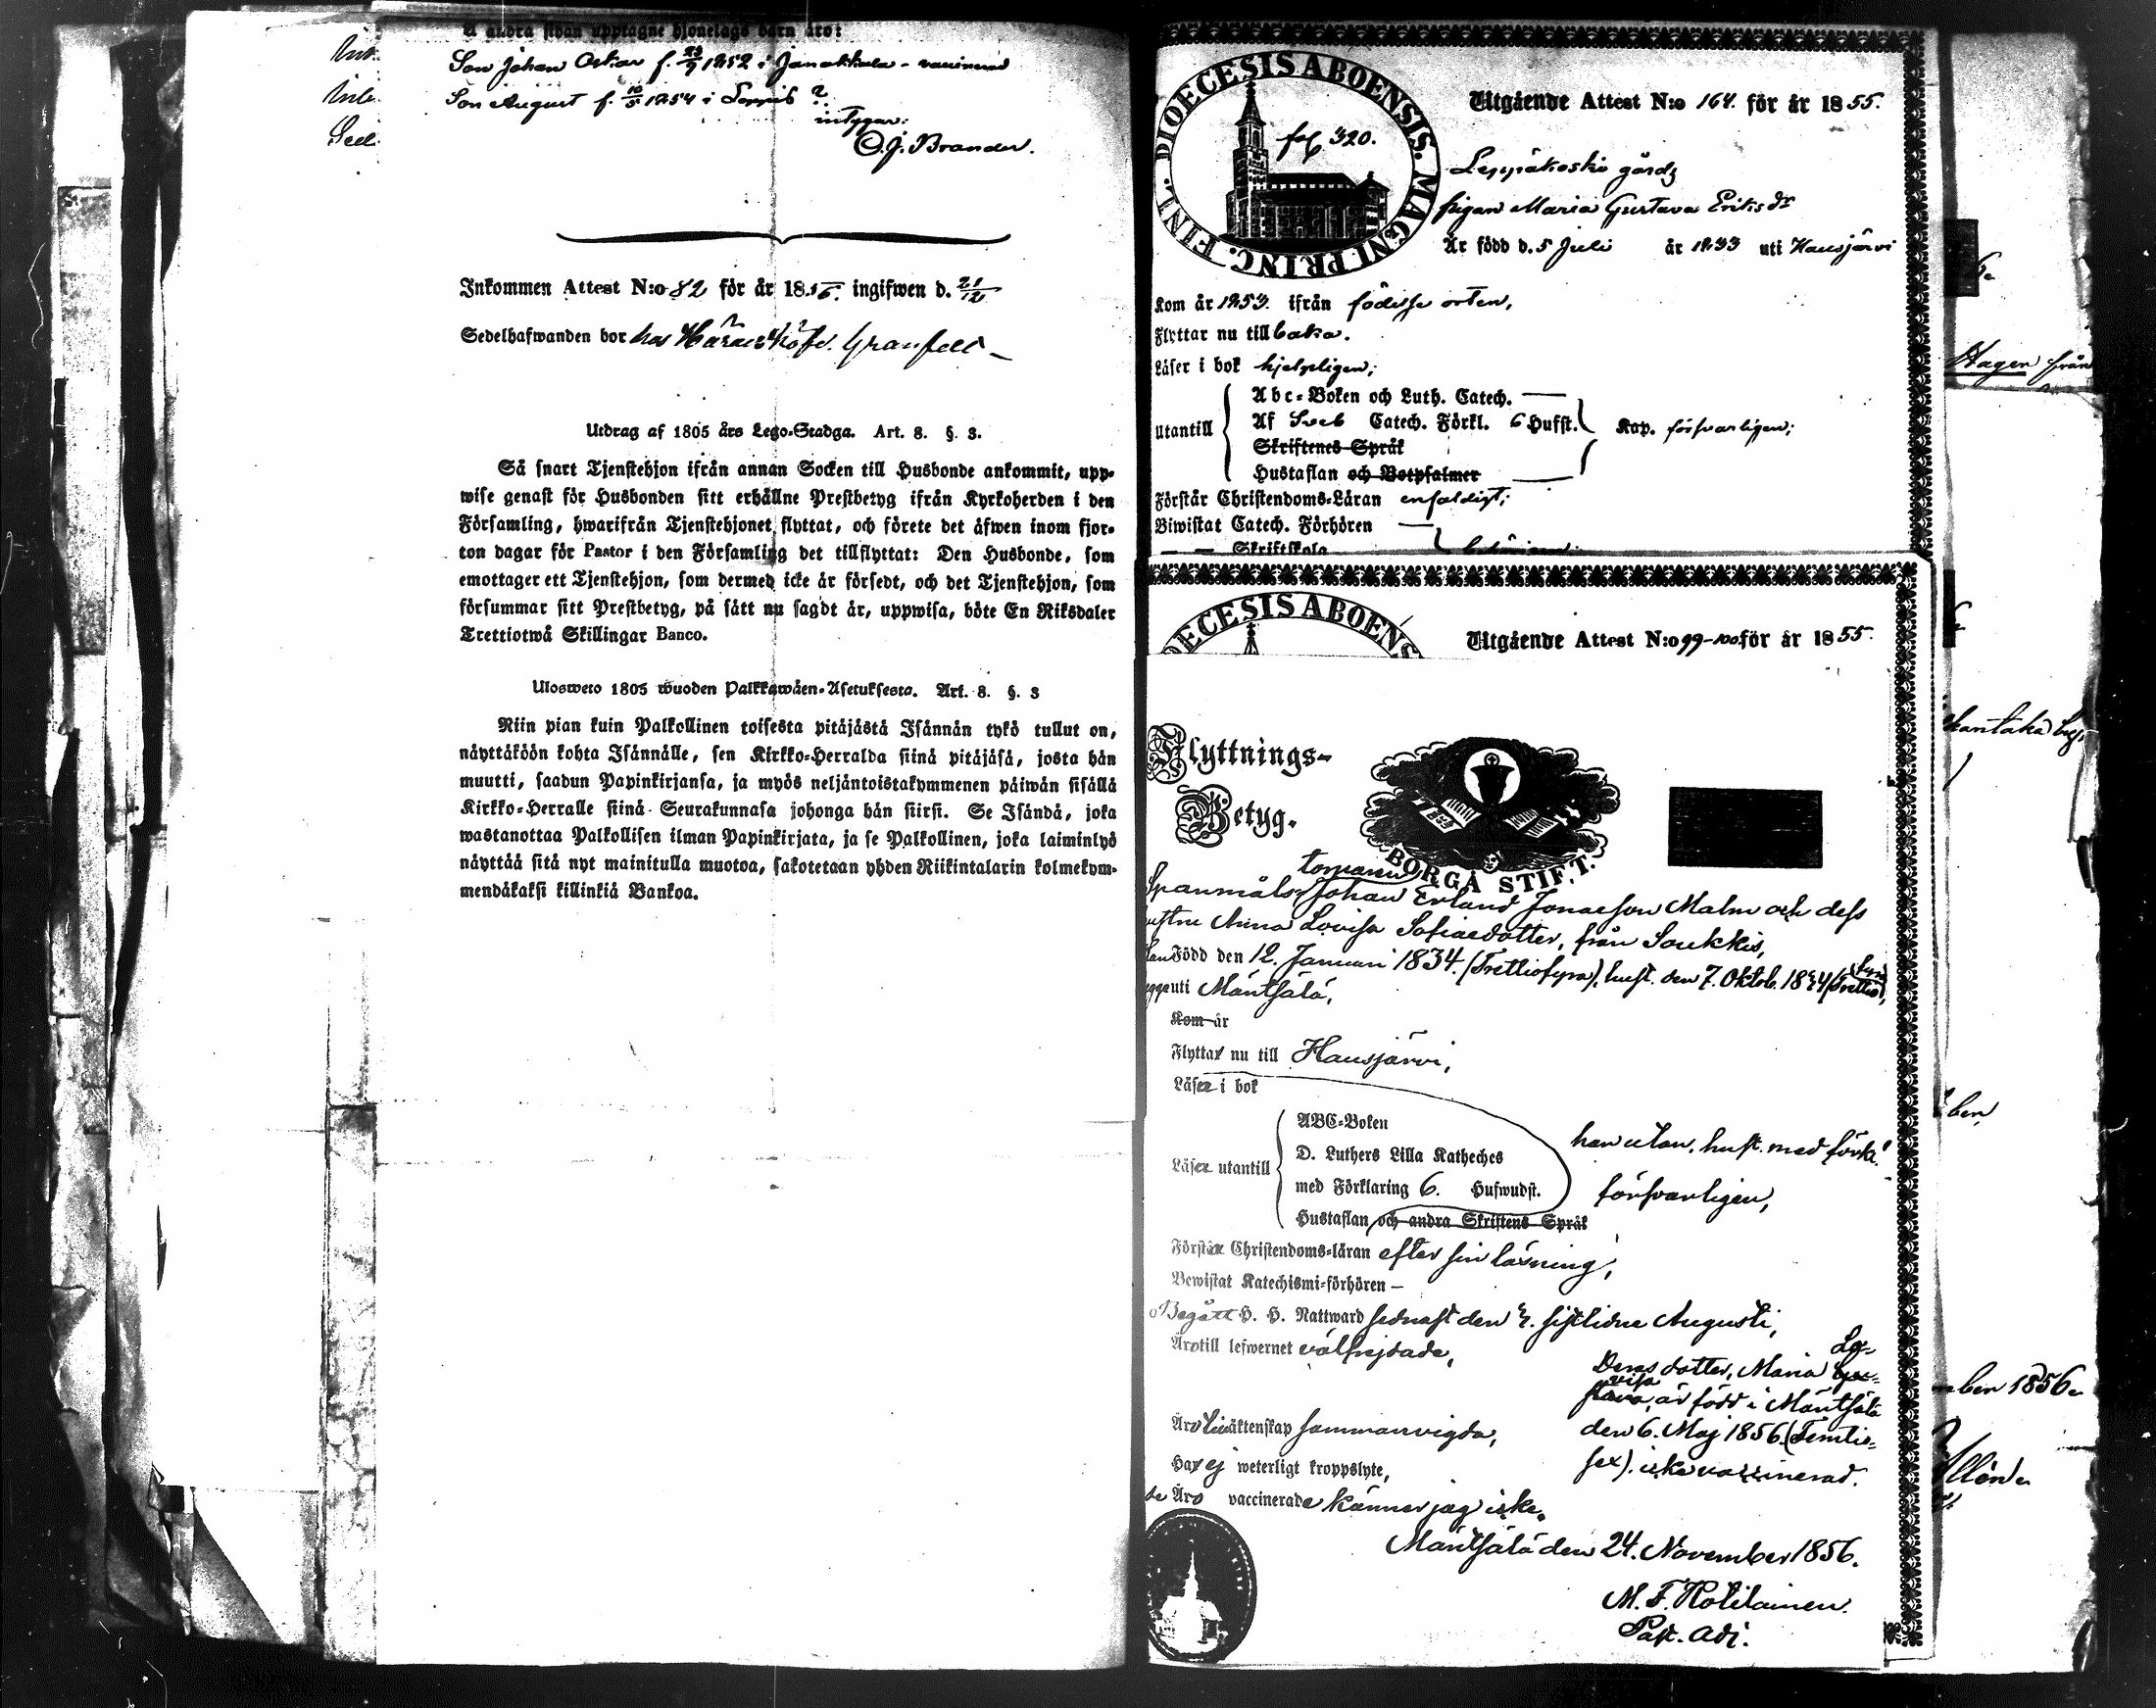 å andra sidan upptagne hjonelags barn äro:
Son Johan Oskar f. 23/9 1852 i Janakkala - vaccinerad
Son August f. 10/5 1854 i Loppis ?
intygar:
C. J. Brander.
Inkommen Attest N:o 82 för år 1856. ingifwen d. 21/12
Sedelhafwanden bor hos Häradshöfd. Granfelt
Utdrag af 1805 års Lego-Stadga. Art. 8. §. 3.
Så snart Tjenstehjon ifrån annan Socken till Husbonde ankommit, upp-
wise genast för Husbonden sitt erhållne Prestbetyg ifrån Kyrkoherden i den
Församling, hwarifrån Tjenstehjonet flyttat, och förete det äfwen inom fjor-
ton dagar för Pastor i den Församling det tillflyttat: Den Husbonde, som
emottager ett Tjenstehjon, som dermed icke är försedt, och det Tjenstehjon, som
försummar sitt Prestbetyg, på sätt nu sagdt är, uppwisa, böte En Riksdaler
Trettiotwå Skillingar Banco.
Ulosweto 1805 wuoden Palkkawäen-Asetuksesta. Art. 8. §. 3
Niin pian kuin Palkollinen toisesta pitäjästä Isännän tykö tullut on,
näyttäköön kohta Isännälle, sen Kirkko-Herralda siinä pitäjäsä, josta hän
muutti, saadun Papinkirjansa, ja myös neljäntoistakymmenen päiwän sisällä
Kirkko-Herralle siinä Seurakunnasa johonga hän siirsi. Se Isändä, joka
wastanottaa Palkollisen ilman Papinkirjata, ja se Palkollinen, joka laiminlyö
näyttää sitä nyt mainitulla muotoa, sakotetaan yhden Riikintalarin kolmekym-
mendäkaksi killinkiä Bankoa.
DIOECESIS ABOENSIS. MAGNI PRINC. FINL.
fol 320.
Utgående Attest N:o 164. för år 1855.
Leppäkoski gårds
pigan Maria Gustava Eriksdr
Är född d. 5 Juli år 1833 uti Hausjärvi
Kom år 1853. ifrån födelse orten,
Flyttar nu tillbaka.
Läser i bok hjelpligen;
utantill
Abc-Boken och Luth. Catech.
Af Sveb Catech. Förkl. 6 Hufst. Kap. försvarligen;
Skriftenes Språk
Hustaflan och Botpsalmer
Förstår Christendoms-Läran enfaldigt;
Biwistat Catech. Förhören
Skriftskola
DIOECESIS ABOENS
Utgående Attest N:o 99-100 för år 1855.
Flyttnings-
Betyg.
BORGÅ STIFT.
torparen
Spanmåls Johan Erland Jonaeson Malm och dess
hustru Anna Lovisa Sofiaedotter, från Soukkis,
Född den 12. Januari 1834. (Trettiofyra), hust. den 7. Oktob. 1834 (Trettiofyra),
uti Mäntsälä,
Kom år
Flyttar nu till Hausjärvi,
Läser i bok
ABC-Boken
D. Luthers Lilla Katheches
Läser utantill
med Förklaring 6. Hufwudst.
Hustaflan och andra Skriftens Språk
han utan, hust. med förkl.
försvarligen,
Förstår Christendoms-läran efter sin läsning,
Bewistat Katechismi-förhören -
Begått H. H. Nattward sednast den 4. sistlidne Augusti,
Äro till lefwernet välfrejdade,
Deras dotter, Maria Lo-
visa, är född i Mäntsälä
den 6. Maj 1856. (Femtio-
sex). icke vaccinerad.
Äro äktenskap sammanvigda,
Hav ej weterligt kroppslyte,
Äro vaccinerade känner jag icke.
Mäntsälä den 24. November 1856.
M. F. Rotilainen.
Past. adj.
Hagen från
ben,
ber 1856.